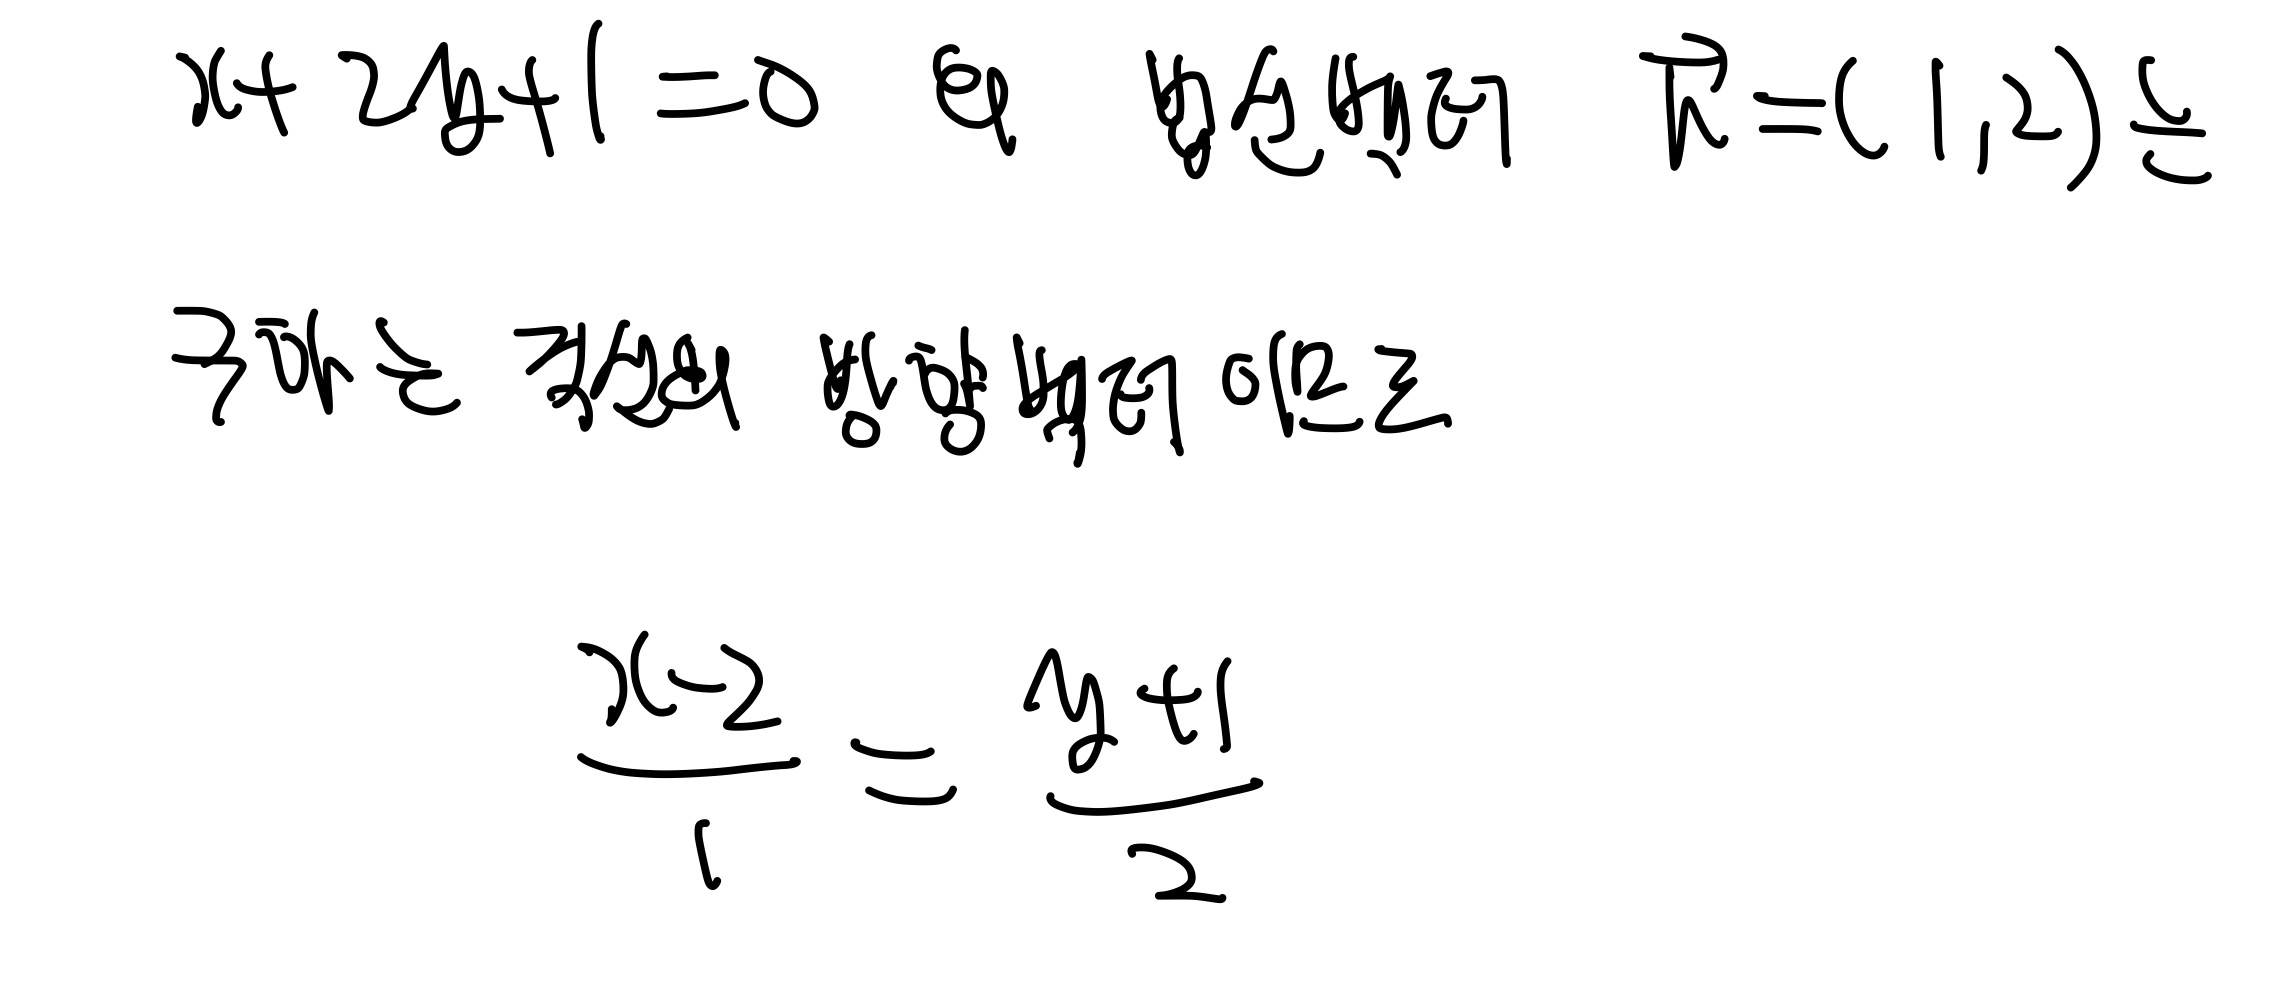 x+2y+1=0 의 법선벡터 n⃗=(1,2)는
구하는 직선의 방향벡터 이므로
(x-2)/1 = (y+1)/2